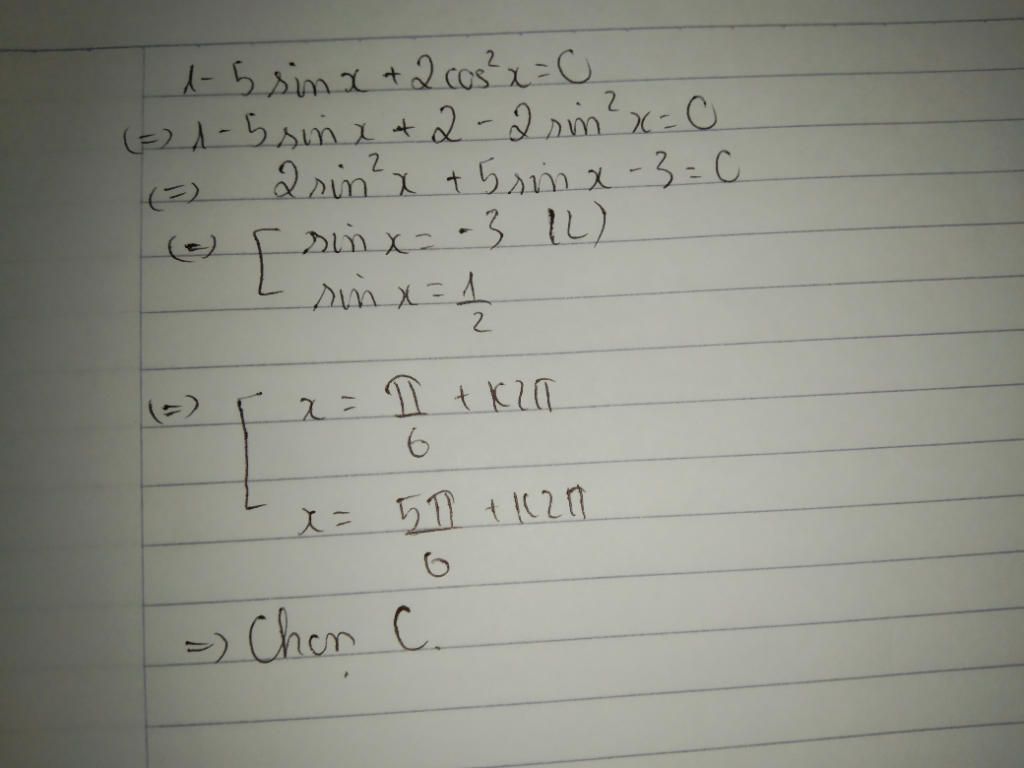 1 - 5 sin x + 2 cos² x = 0
(=) 1 - 5 sin x + 2 - 2 sin² x = 0
(=) 2 sin² x + 5 sin x - 3 = 0
(=) [ sin x = -3 (L)
sin x = 1/2
(=) [ x = π/6 + K2π
x = 5π/6 + K2π
=) Chọn C.